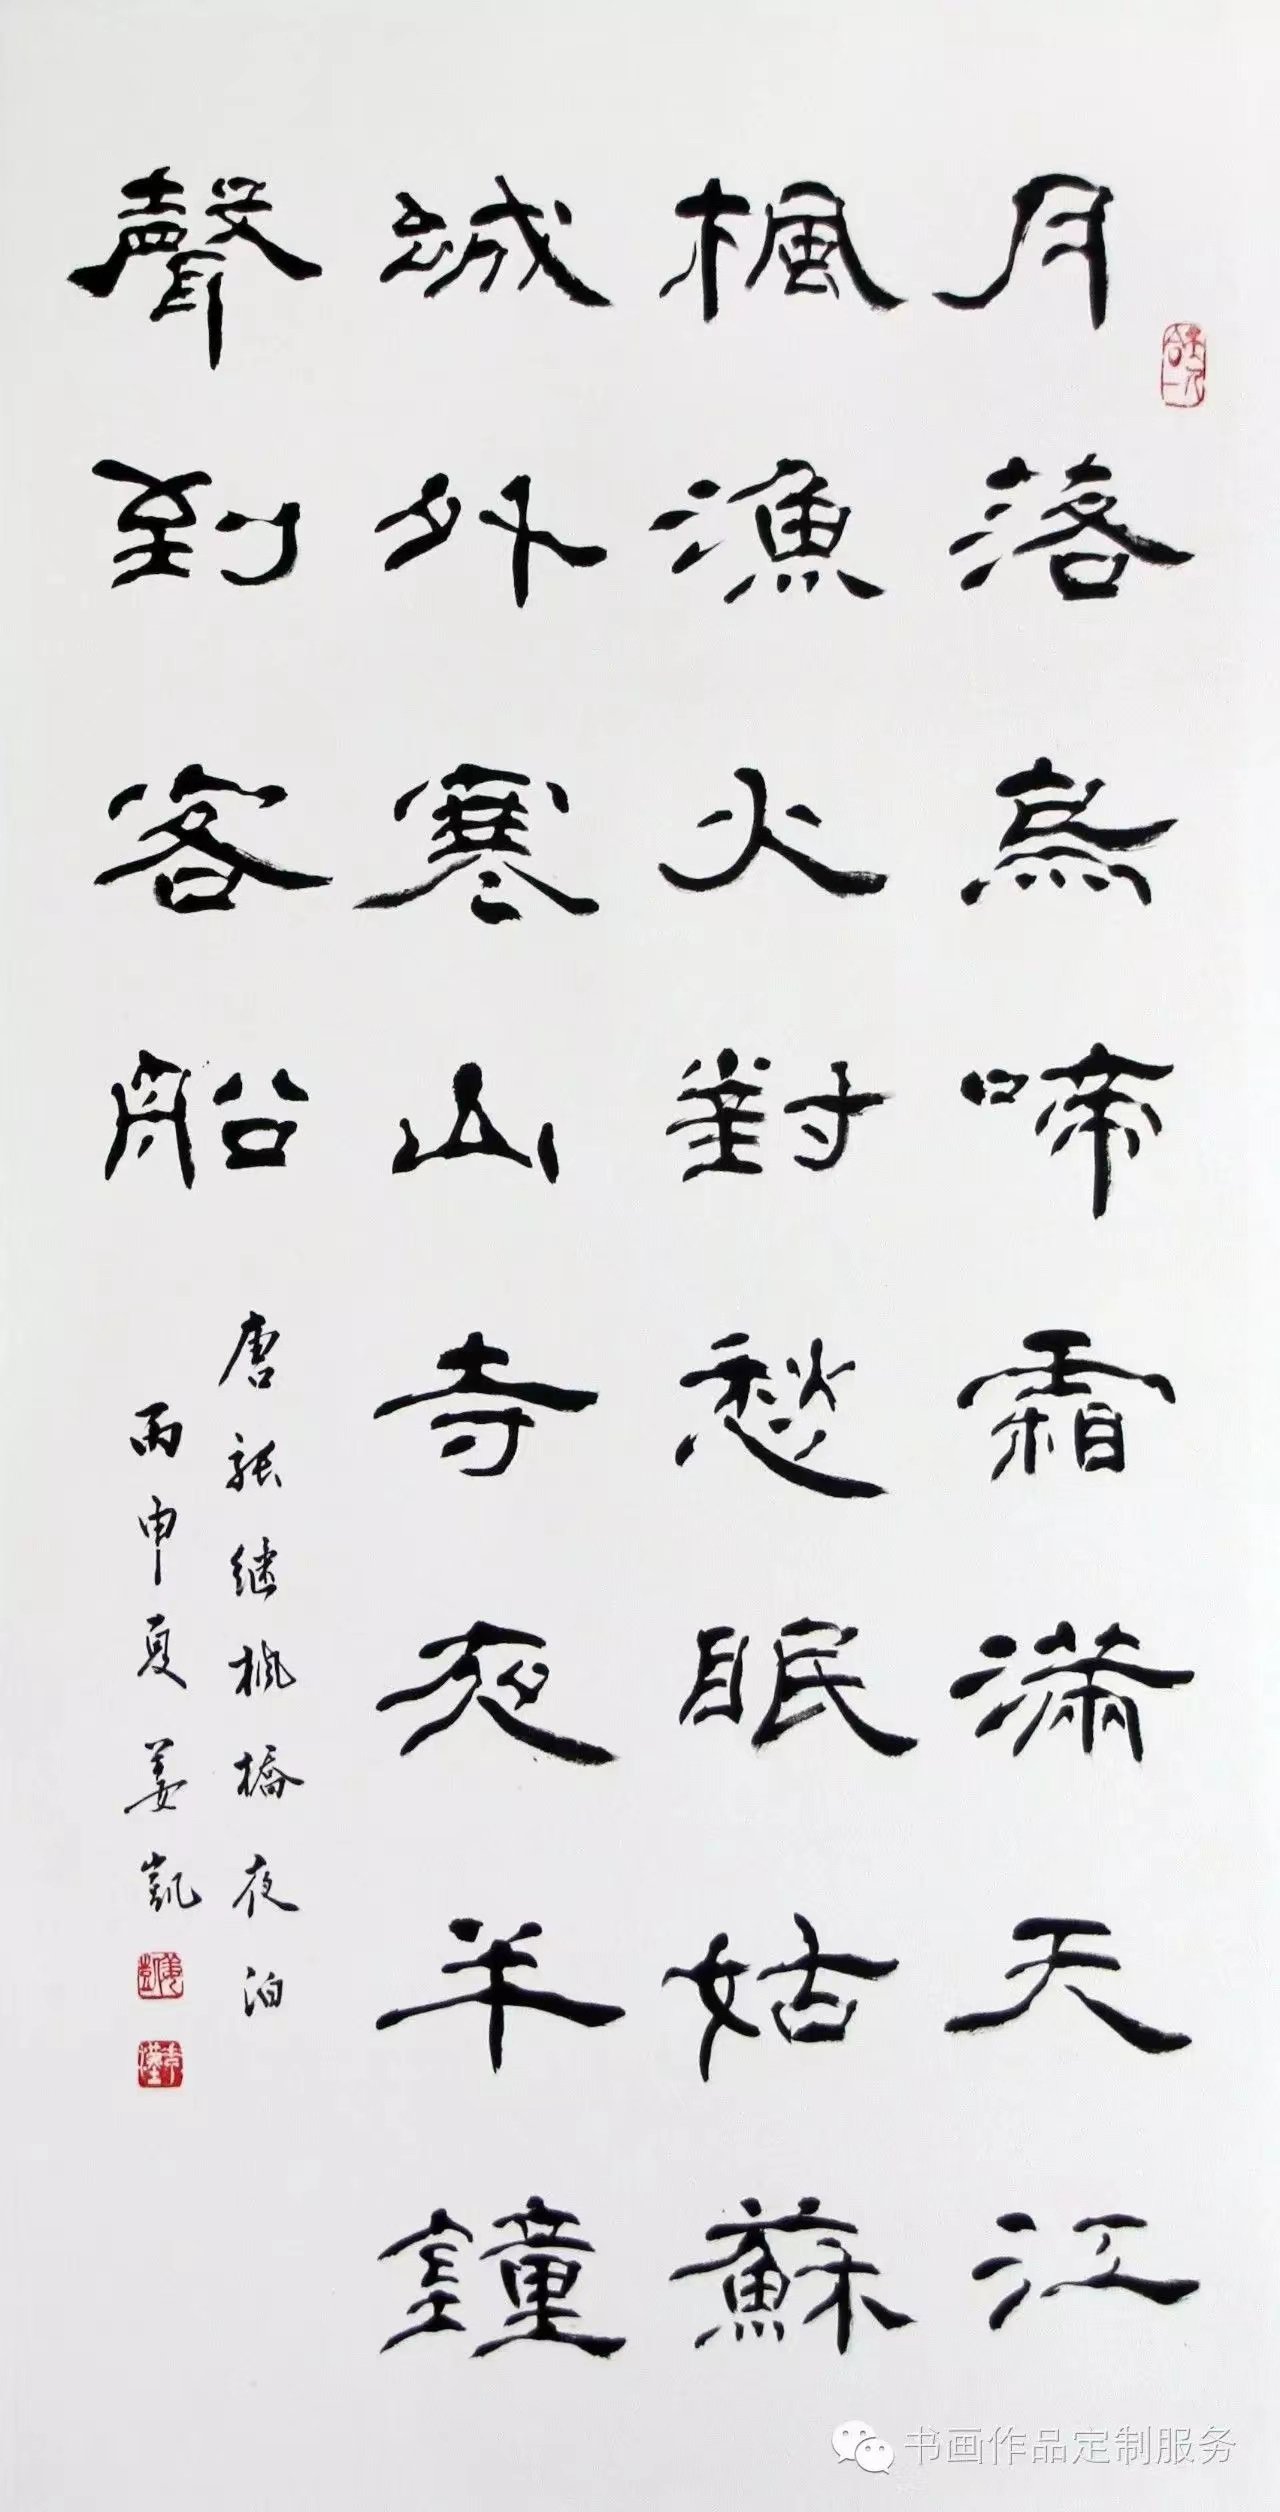 月落烏啼霜滿天江
楓漁火對愁眠姑蘇
城外寒山寺夜半鐘
聲到客船
唐張继楓橋夜泊
丙申夏姜凱
书画作品定制服务